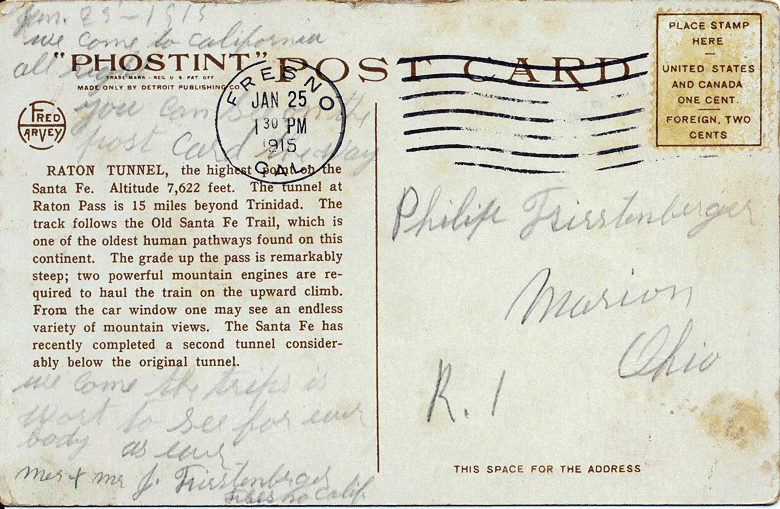 Jan. 25 - 1915
we come to California
all
"PHOSTINT" POST CARD
TRADE MARK - REG U S PAT. OFF
MADE ONLY BY DETROIT PUBLISHING CO.
you can see on the
post card the way
FRED
HARVEY
FRESNO
JAN 25
1 30 PM
1915
CAL.
PLACE STAMP
HERE
UNITED STATES
AND CANADA
ONE CENT.
FOREIGN, TWO
CENTS
RATON TUNNEL, the highest point on the
Santa Fe. Altitude 7,622 feet. The tunnel at
Raton Pass is 15 miles beyond Trinidad. The
track follows the Old Santa Fe Trail, which is
one of the oldest human pathways found on this
continent. The grade up the pass is remarkably
steep; two powerful mountain engines are re-
quired to haul the train on the upward climb.
From the car window one may see an endless
variety of mountain views. The Santa Fe has
recently completed a second tunnel consider-
ably below the original tunnel.
we come the trips is
wort to see for ever
body as ever
Mr & Mr J. Frirstenberger
Fresno Calif
Philip Frirstenberger
Marion
Ohio
R. 1
THIS SPACE FOR THE ADDRESS